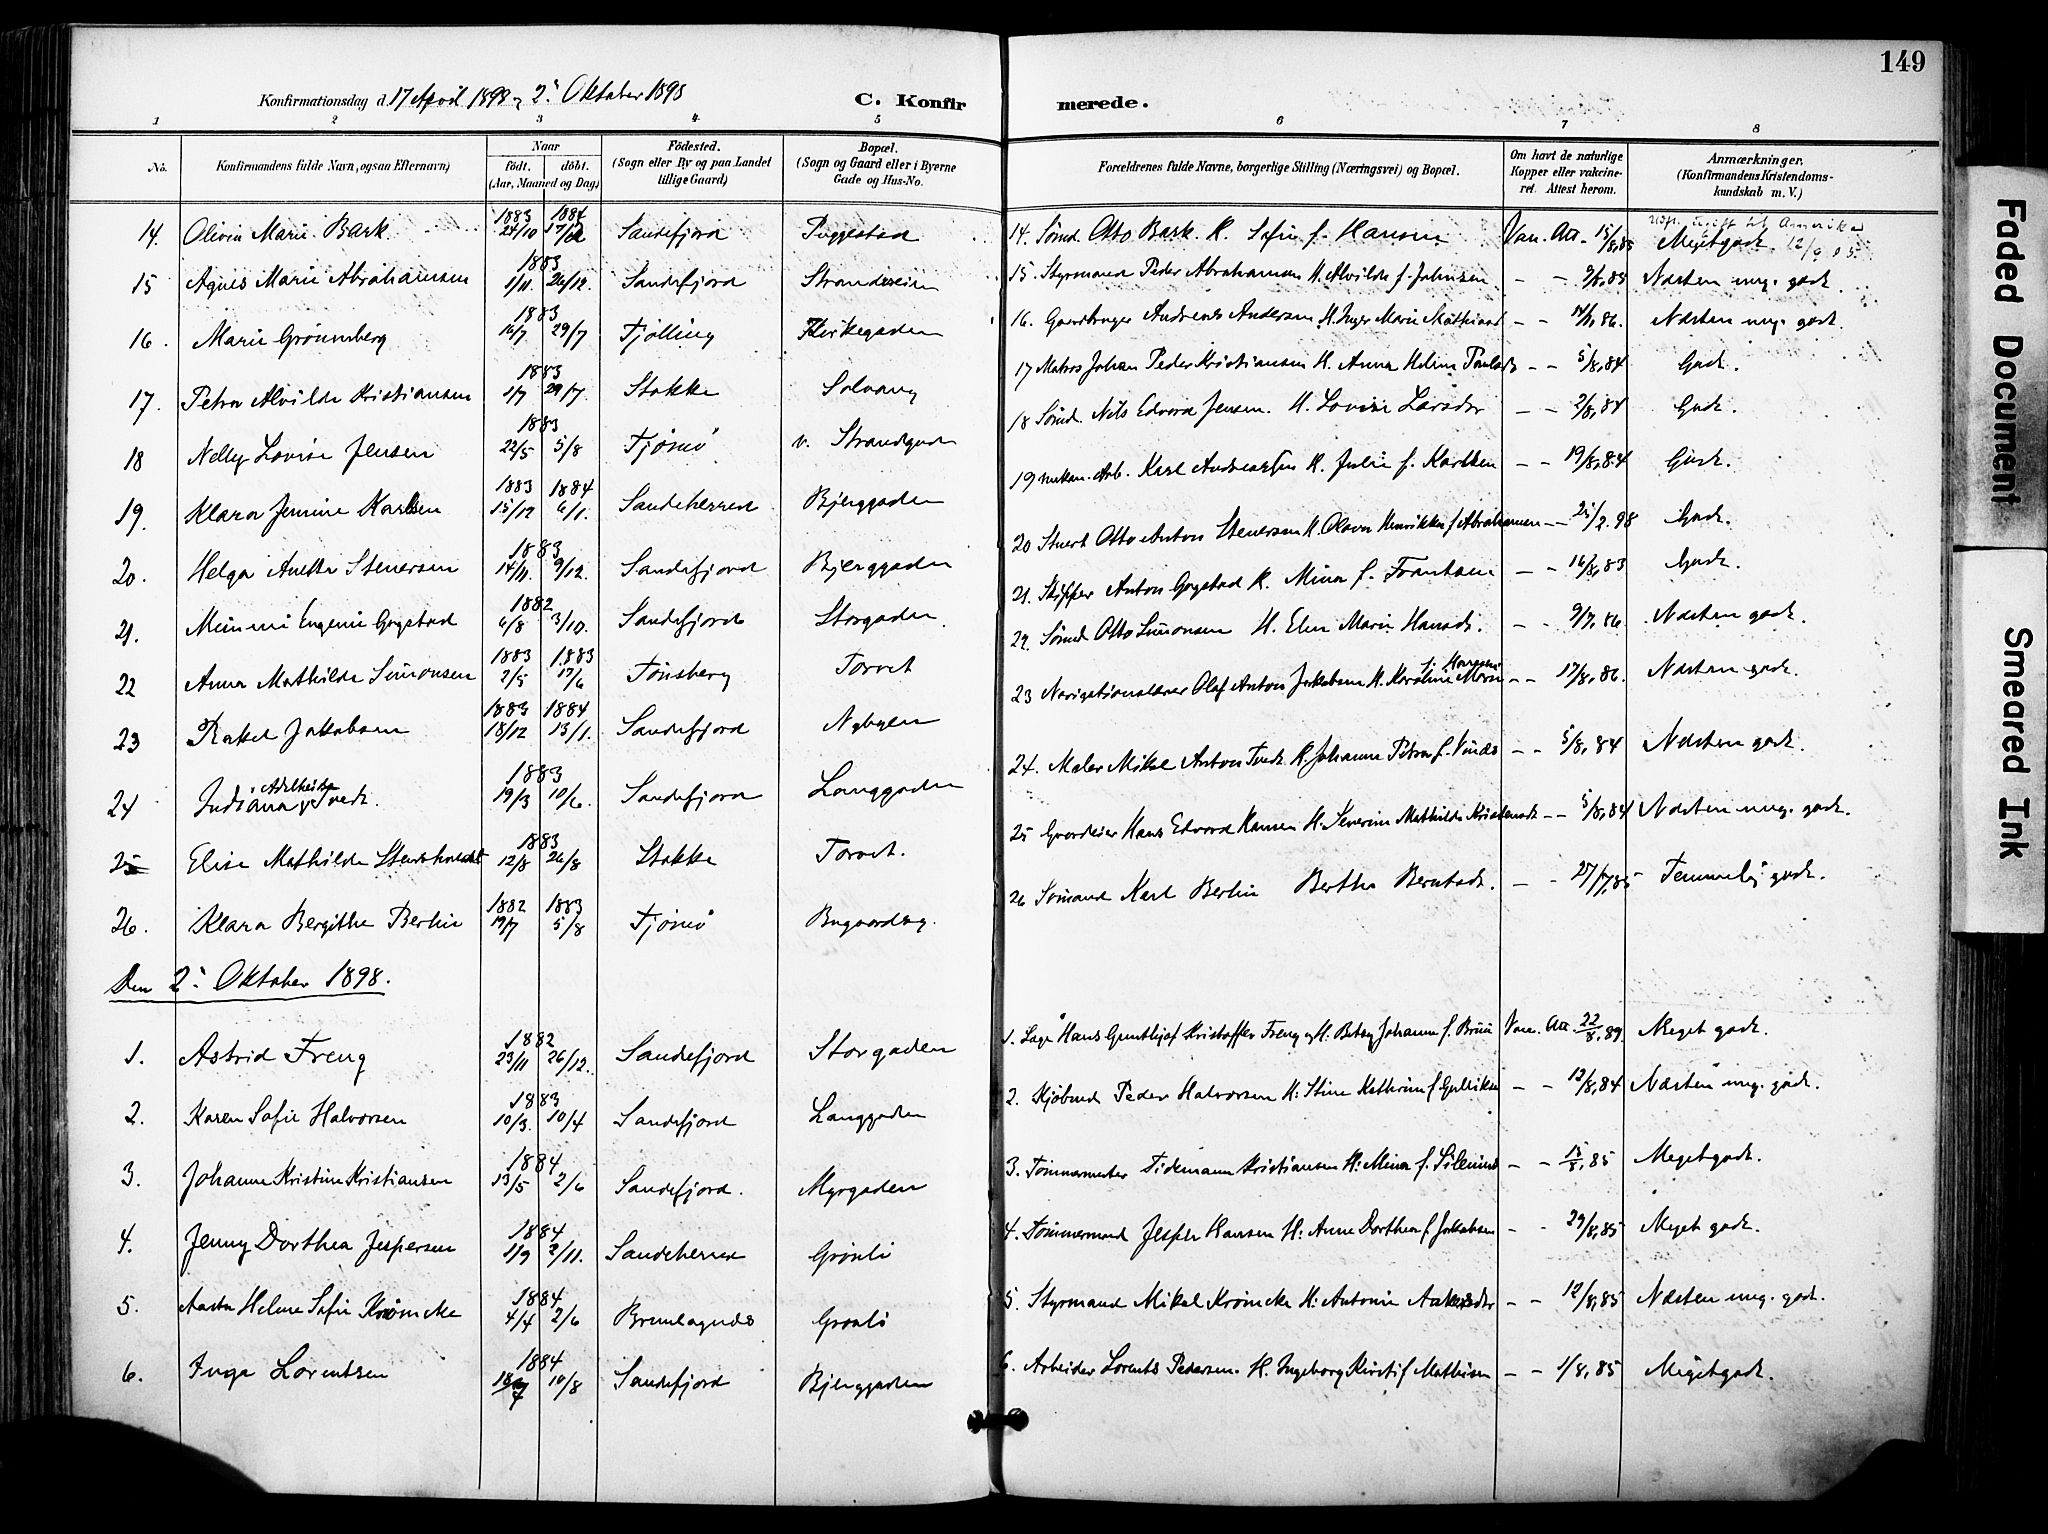 149
Konfirmationsdag d. 17 April 1898 2' Oktober 1898 C. Konfirmerede.
1 2 3 4 5 6 7 8
No. Konfirmandens fulde Navn, ogsaa Efternavn) Naar født. døbt. (Aar, Maaned og Dag) Fødested. (Sogn eller By og paa Landet tillige Gaard) Bopæl. (Sogn og Gaard eller i Byerne Gade og Hus-No. Forældrenes fulde Navne, borgerlige Stilling (Næringsvei) og Bopæl. Om havt de naturlige Kopper eller vakcineret. Attest herom. Anmærkninger. (Konfirmandens Kristendomskundskab m. V.)
14. Olivia Marie Bark 1883 24/10 1884 Sandefjord Puggestad 14. Sømd. Otto Bark. H. Sofie f. Hansen Vac. Att. 15/8,85 Megetgodt. 12/9 05
15 Agnes Marie Abrahamsen 1883 1/11. 26/12. Sandefjord Strandveien 15. Styrmand Peder Abrahamsen H. Alvilde f. Johnsen - - 9/8,85 Næsten mg. godt.
16. Marie Grønnsberg 1883 16/7 29/7 Tjølling Kirkegaden 16. Gaardbruger Andreas Andersen H. Inger Marie Mathisdt - - 86. Næsten mg. godt.
17. Petra Alvilde Kristiansen 1883 1/7 29/7. Stokke Solvang 17 Matros Johan Peder Kristiansen H. Anna Helene Paulsdt - - 5/8,84 Godt.
18 Nelly Lovise Jensen 1883 22/5 5/8 Tjømø v. Strandgad 18 Sømd. Nils Edvard Jensen. H. Lovise Larsdtr - - 2/8,84 Godt.
19. Klara Jennine Karlsen 1883 15/12 1884 6/1. Sandeherred Bjerggaden 19 mekan. Arb. Karl Andreassen H. Julie f. Karlsen - - 19/8,84 Godt.
20. Helga Anetta Stenersen 1883 14/11. 9/12. Sandefjord Bjerggaden 20 Stuert Otto Anton Stenersen H. Olava Henrikke f Abrahamsen - - 25/2.98 Godt.
21. Mimmi Eugenie Gogstad 1882 6/8 3/10. Sandefjord Storgaden. 21. Skipper Anton Gogstad H. Mina f. Frantzen - - 16/8,83 Godt.
22 Anna Mathilde Simonsen 1883 2/5 1883 17/6 Tønsberg Torvet 22. Sømd Otto Simonsen H. Elen Marie Hansdt. - - 9/7,86. Næsten godt.
23 Rakel Jakobsen 1883 18/12 1884 13/1. Sandefjord Nybyen 23 Navigationslærer Olaf Anton Jakobsen H. Karoline Marie f. Hansen - - 17/8,86. Næsten godt.
24 Indiana Adelheida Tvedt. 1883 19/3 10/6. Sandefjord Langgaden 24. Maler Mikal Anton Tvedt. H. Johanne Petra f. - - 5/8,84 Næsten godt.
25 Elise Mathilde 1883 12/8 26/8 Stokke Torvet. 25 Gaardeier Hans Edvard Hansen H. Severine Mathilde Kristensdt - - 5/8,84 Næsten mg. godt.
26. Klara Bergitha Berlin 1882 19/7 1883 5/8 Tjømø Bugaardsg. 26 Sømand Karl Berlin Bertha Berntsdt. - - 27/7,85 Temmelig godt.
Den 2' Oktober 1898.
1. Astrid Freng 1882 23/11 26/12. Sandefjord Storgaden 1. Læge Hans Gunthjof Kristoffer Freng og H. Betsy Johanne f. Bruu Vac. Att. 22/8,89 Meget godt.
2. Karen Sofie Halvorsen 1883 10/3. 10/4 Sandefjord Langgaden 2. Kjøbmd Peder Halvorsen H. Stine Kathrine f Gulliksen - - 13/8,84 Næsten mg. godt.
3. Johanne Kristine Kristiansen 1884 13/5 2/6 Sandefjord. Myrgaden 3. Tømmermester Tidemann Kristiansen H. Mina f. Silenius - - 15/8,85 Megetgodt.
4. Jenny Dorthea Jespersen 1884 1/9 2/11. Sandeherred Grønli 4. Tømmermand Jesper Hansen H. Anne Dorthea f. Jakobsen - - 29/8,85 Meget godt.
5. Aasta Helene Sofie Krømcke 1884 4/4 2/6 Brunlagnæs Grønli 5. Styrmand Mikal Krømcke H. Antonie - - 12/8,85 Næsten mg. godt.
6. Inga Lorentsen 1884 18/7 10/8 Sandefjord Bjerggaden 6. Arbeider Lorents Pedersen. H. Ingeborg Kirsti f Mathisen - - 1/8,85 Megetgodt.
Faded Document
Smeared Ink